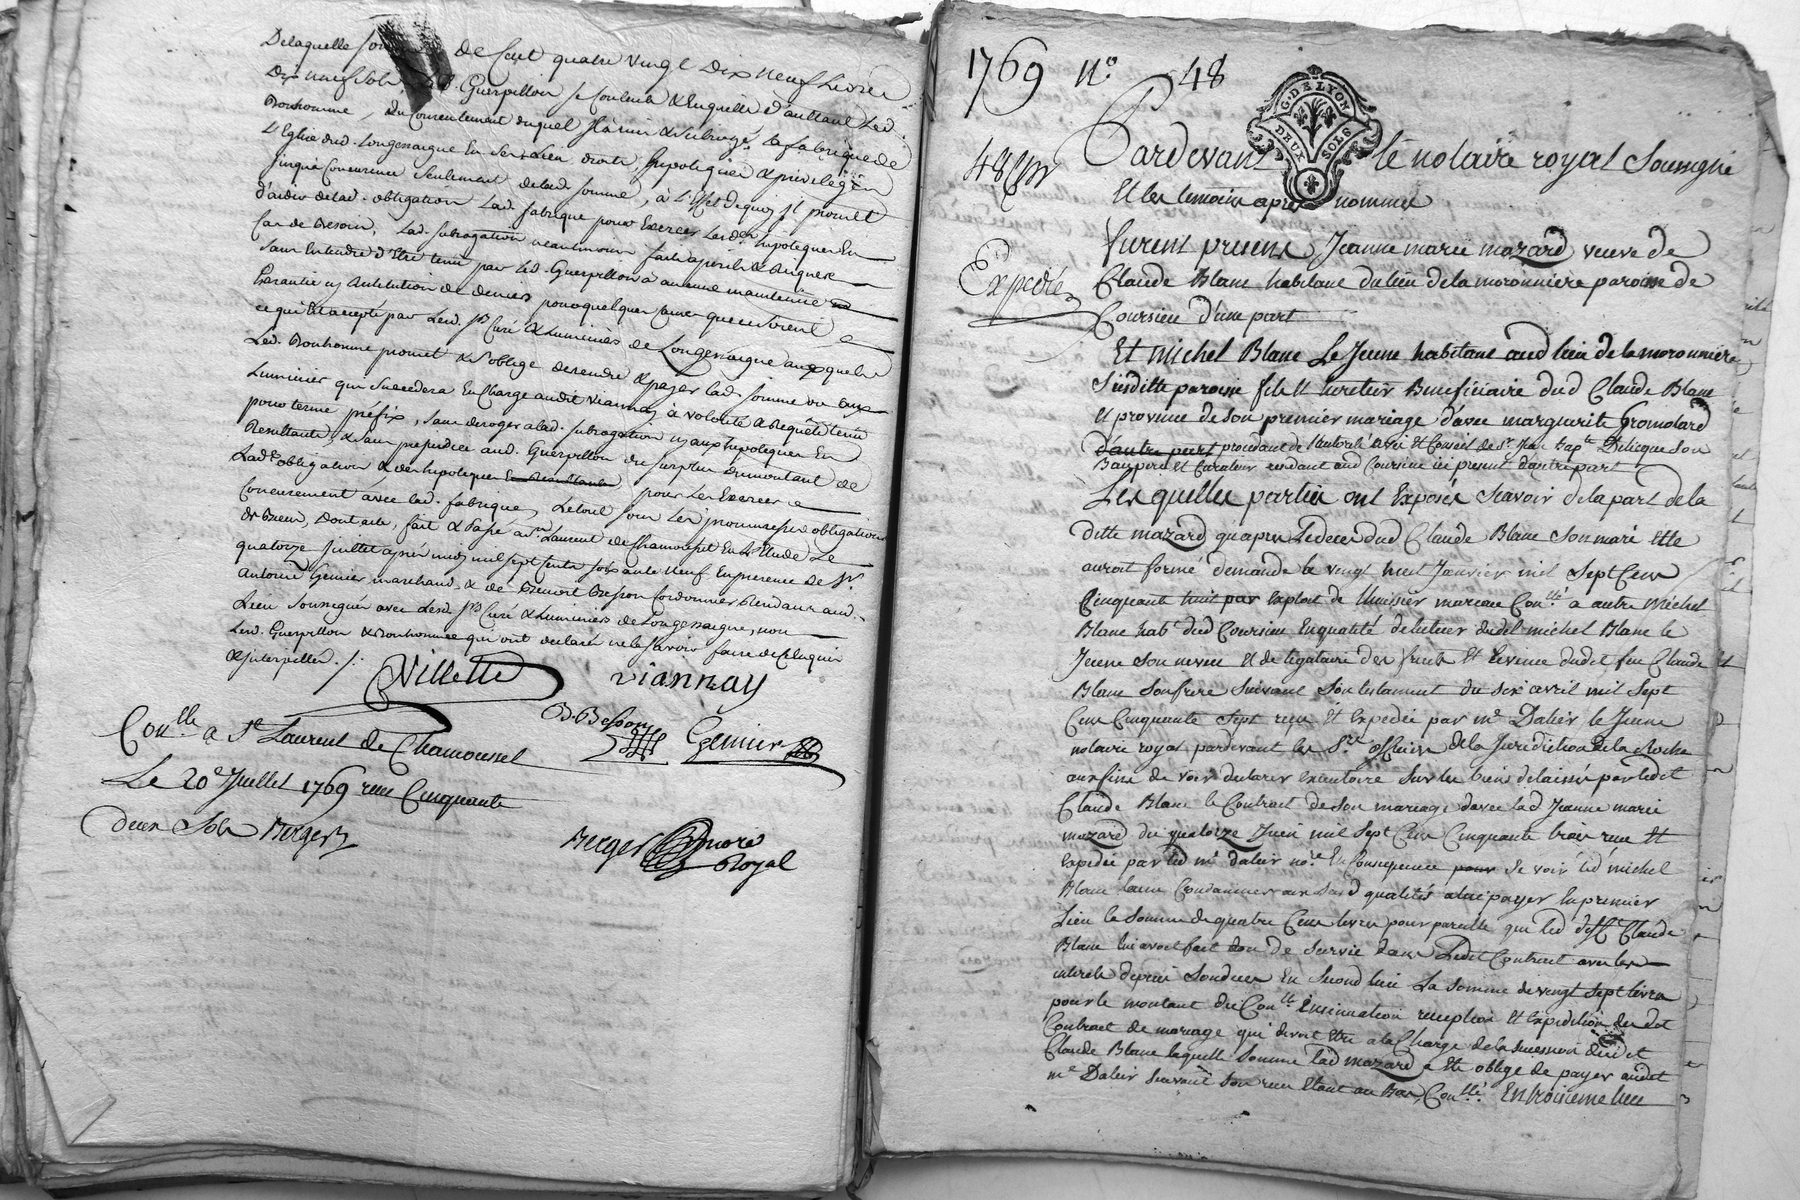 Delaquelle som de Cent quatre vingt Dix neuf Livres
Dix neuf Sols, Led. Guerpillon se Contente & Enquitte d'auttant Led.
Bonhomme, du Consentement duquel Il a mis & Subrogé la fabrique de
L'Eglise dud. Longessaigne En Ses Lieu droits, hipoteques & privileges
jusqua Concurrence Seulement delad. Somme, à L'Effet dequoy Il promet
d'aider delad. obligation Lad. fabrique pour Exercer Lesd. hipoteques En
Cas de Besoin, Lad. Subrogation neantmoins faite
Sans Entendre d'Etre tenu par Led. Guerpillon a aucune maintenüe
Garantie ny restitution de deniers pour quelque Cause que ce soient
ce qui Est accepté par Lesd. Srs Curé & Luminiers de Longessaigne auxquels
Led. Bonhomme promet & s'oblige de rendre & payer lad. Somme ou aux
Luminiers qui Succedera En Charge audit Viannay à Volonté & Requête
pour terme préfix, Sans deroger alad. Subrogation ny aux hipoteques En
Resultants, & Sans prejudice aud. Guerpillon du Surplus du montant de
Lad. obligation, & des hipoteques pour Les Exercer
Concurremment avec lad. fabrique, Letout sous Les promesses obligations
de Biens, Dont acte, fait & Passé a St. Laurent de Chamousset En L'Etude Le
quatorze Juillet après midy mil sept Cents soixante Neuf En presence de Sr.
Antoine Gemier marchand, & de Benoit Besson Cordonnier Residants aud.
Lieu Soussignés avec Lesd. Srs Curé & Luminiers de Longessaigne, non
Lesd. Guerpillon & Bonhomme qui ont declaré ne le Scavoir faire de Ce Enquis
& Interpellés ./.
Villette Viannay
B. Besson Gemier
Conlle a St Laurent de Chamousset
Le 20e Juillet 1769 reçu Cinquante
deux Sols Berger
Berger Nore Royal
1769 No 48
G. DE LYON
DEUX SOLS
48 Cm
Expedié
Pardevant le notaire royal Soussigné
Et les temoins apres nommes
furent presents Jeanne marie mazard veuve de
Claude Blanc habitant du lieu de la moronniere paroisse de
Coursieu d'une part
Et Michel Blanc Le Jeune habitant aud lieu de la moronniere
Susditte paroisse fils Et heretier Beneficiaire dud Claude Blanc
Et provenu de son premier mariage d'avec marguerite Gromolard
d'autre part procedant de l'autorité avis Et Conseil de Sr. Jean Bapte Deliegue son
Beaupere Et Curateur residant aud Coursieu ici present d'autre part
Les quelles parties ont Exposé Scavoir de la part de la
ditte mazard qu'apres Ledeces dud Claude Blanc Son mari Elle
auroit formé demande le vingt huit Janvier mil Sept Cens
Cinquante huit par Exploit de l'huissier mareau Conlé a autre Michel
Blanc habt dud Coursieu En qualité de tuteur dudit michel Blanc le
Jeune Son neveu Et de legataire des fruits Et revenus dudit feu Claude
Blanc Son frere Suivant Son testament du Six avril mil Sept
Cens Cinquante Sept reçu Et Expedié par me Daleir le Jeune
notaire royal pardevant les Srs officiers de la Jurisdiction de la Roche
aux fins de voir declarer Executoire Sur les biens delaissés par ledit
Claude Blanc le Contract de Son mariage d'avec lad Jeanne marie
mazard du quatorze Juin mil Sept Cens Cinquante trois reçu Et
Expedié par led me daleir nore En Consequence pour Se voir led michel
Blanc laine Condamner aux Susd qualités a lui payer En premier
Lieu la Somme de quatre Cens livres pour pareille que led deft Claude
Blanc lui avoit fait don de Survie dans Ledit Contract avec les
interets depuis Son deces En Second lieu La Somme de vingt Sept livres
pour le montant du Conlle Insinuation reception Et Expedition dudit
Contract de mariage qui devoit Etre a la Charge de la Succession dudit
Claude Blanc laquelle Somme lad mazard a Eté obligé de payer audit
me Daleir Suivant Son reçu Etant au Bas, Conllé En troisieme lieu